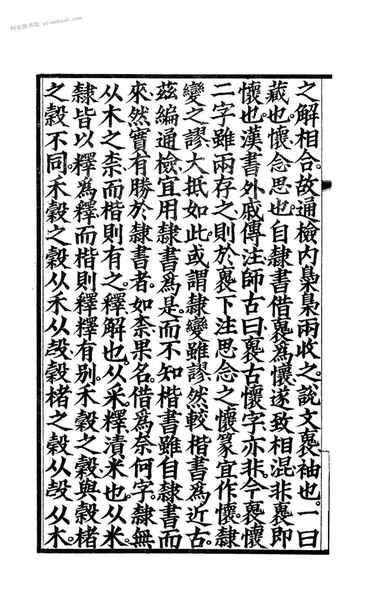 之解相合。故通檢內梟梟兩收之。說文褱袖也。一曰
藏也。懷念思也。自隸書借褱為懷。遂致相混。非褱即
懷也。漢書外戚傳注師古曰。褱古懷字。亦非。今褱懷
二字雖兩存之。則於褱下注思念之懷。篆宜作懷。隸
變之謬。大抵如此。或謂隸變雖謬。然較楷書為近古。
茲編通檢。宜用隸書為是。而不知楷書雖自隸書而
來。然實有勝於隸書者。如柰果名。借為奈何字。隸無
从木之柰。而楷則有之。釋解也。从釆。釋漬米也。从米。
隸皆以釋為釋。而楷則釋釋有別。禾穀之穀。與榖楮
之榖不同。禾穀之穀。从禾从㱿。榖楮之榖。从㱿从木。